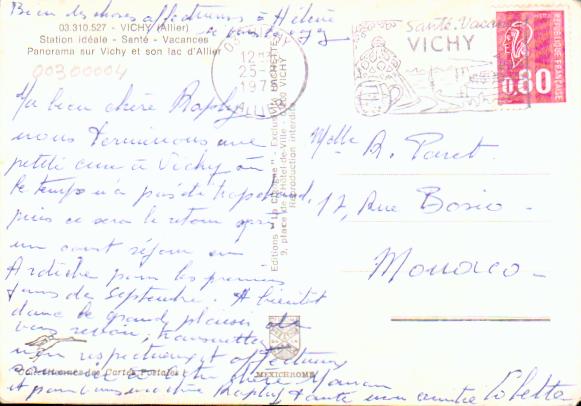 Bien des choses affectueuses à Hélène
03.310.527 - VICHY (Allier)
Station idéale - Santé - Vacances
Panorama sur Vichy et son lac d'Allier
00300004
25
197
ALLIER
Santé. Vacances
VICHY
REPUBLIQUE FRANÇAISE
0,80
Ma bien chère Raphy
nous terminons une
petite cure à Vichy où
le temps n'a pas été trop chaud,
puis ce sera le retour après
un court séjour en
Ardèche pour les premiers
jours de Septembre. A bientôt
donc le grand plaisir de
vous revoir, transmettez
mon respectueux et affectueux
chère Maman
et pour vous ma chère Raphy toute mon amitié
Editions "La Cigogne" - Exclusivité HACHETTE
9, place de l'Hôtel-de-Ville - VICHY
Reproduction interdite
MEXICHROME
Melle R. Paret
17, Rue Bosio -
Monaco -